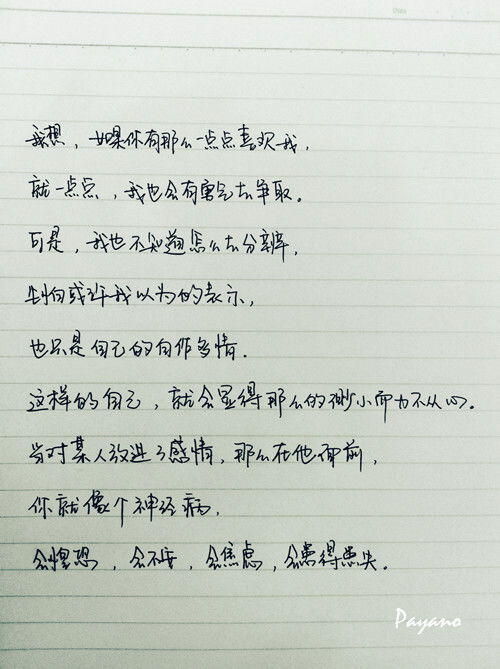 我想，如果你有那么一点点喜欢我，
就一点点，我也会有勇气去争取。
可是，我也不知道怎么去分辨，
生怕或许我以为的表示，
也只是自己的自作多情．
这样的自己，就会显得那么的渺小而力不从心。
当对某人放进了感情，那么在他面前，
你就像个神经病，
会惶恐，会不安，会焦虑，会患得患失。
Payano